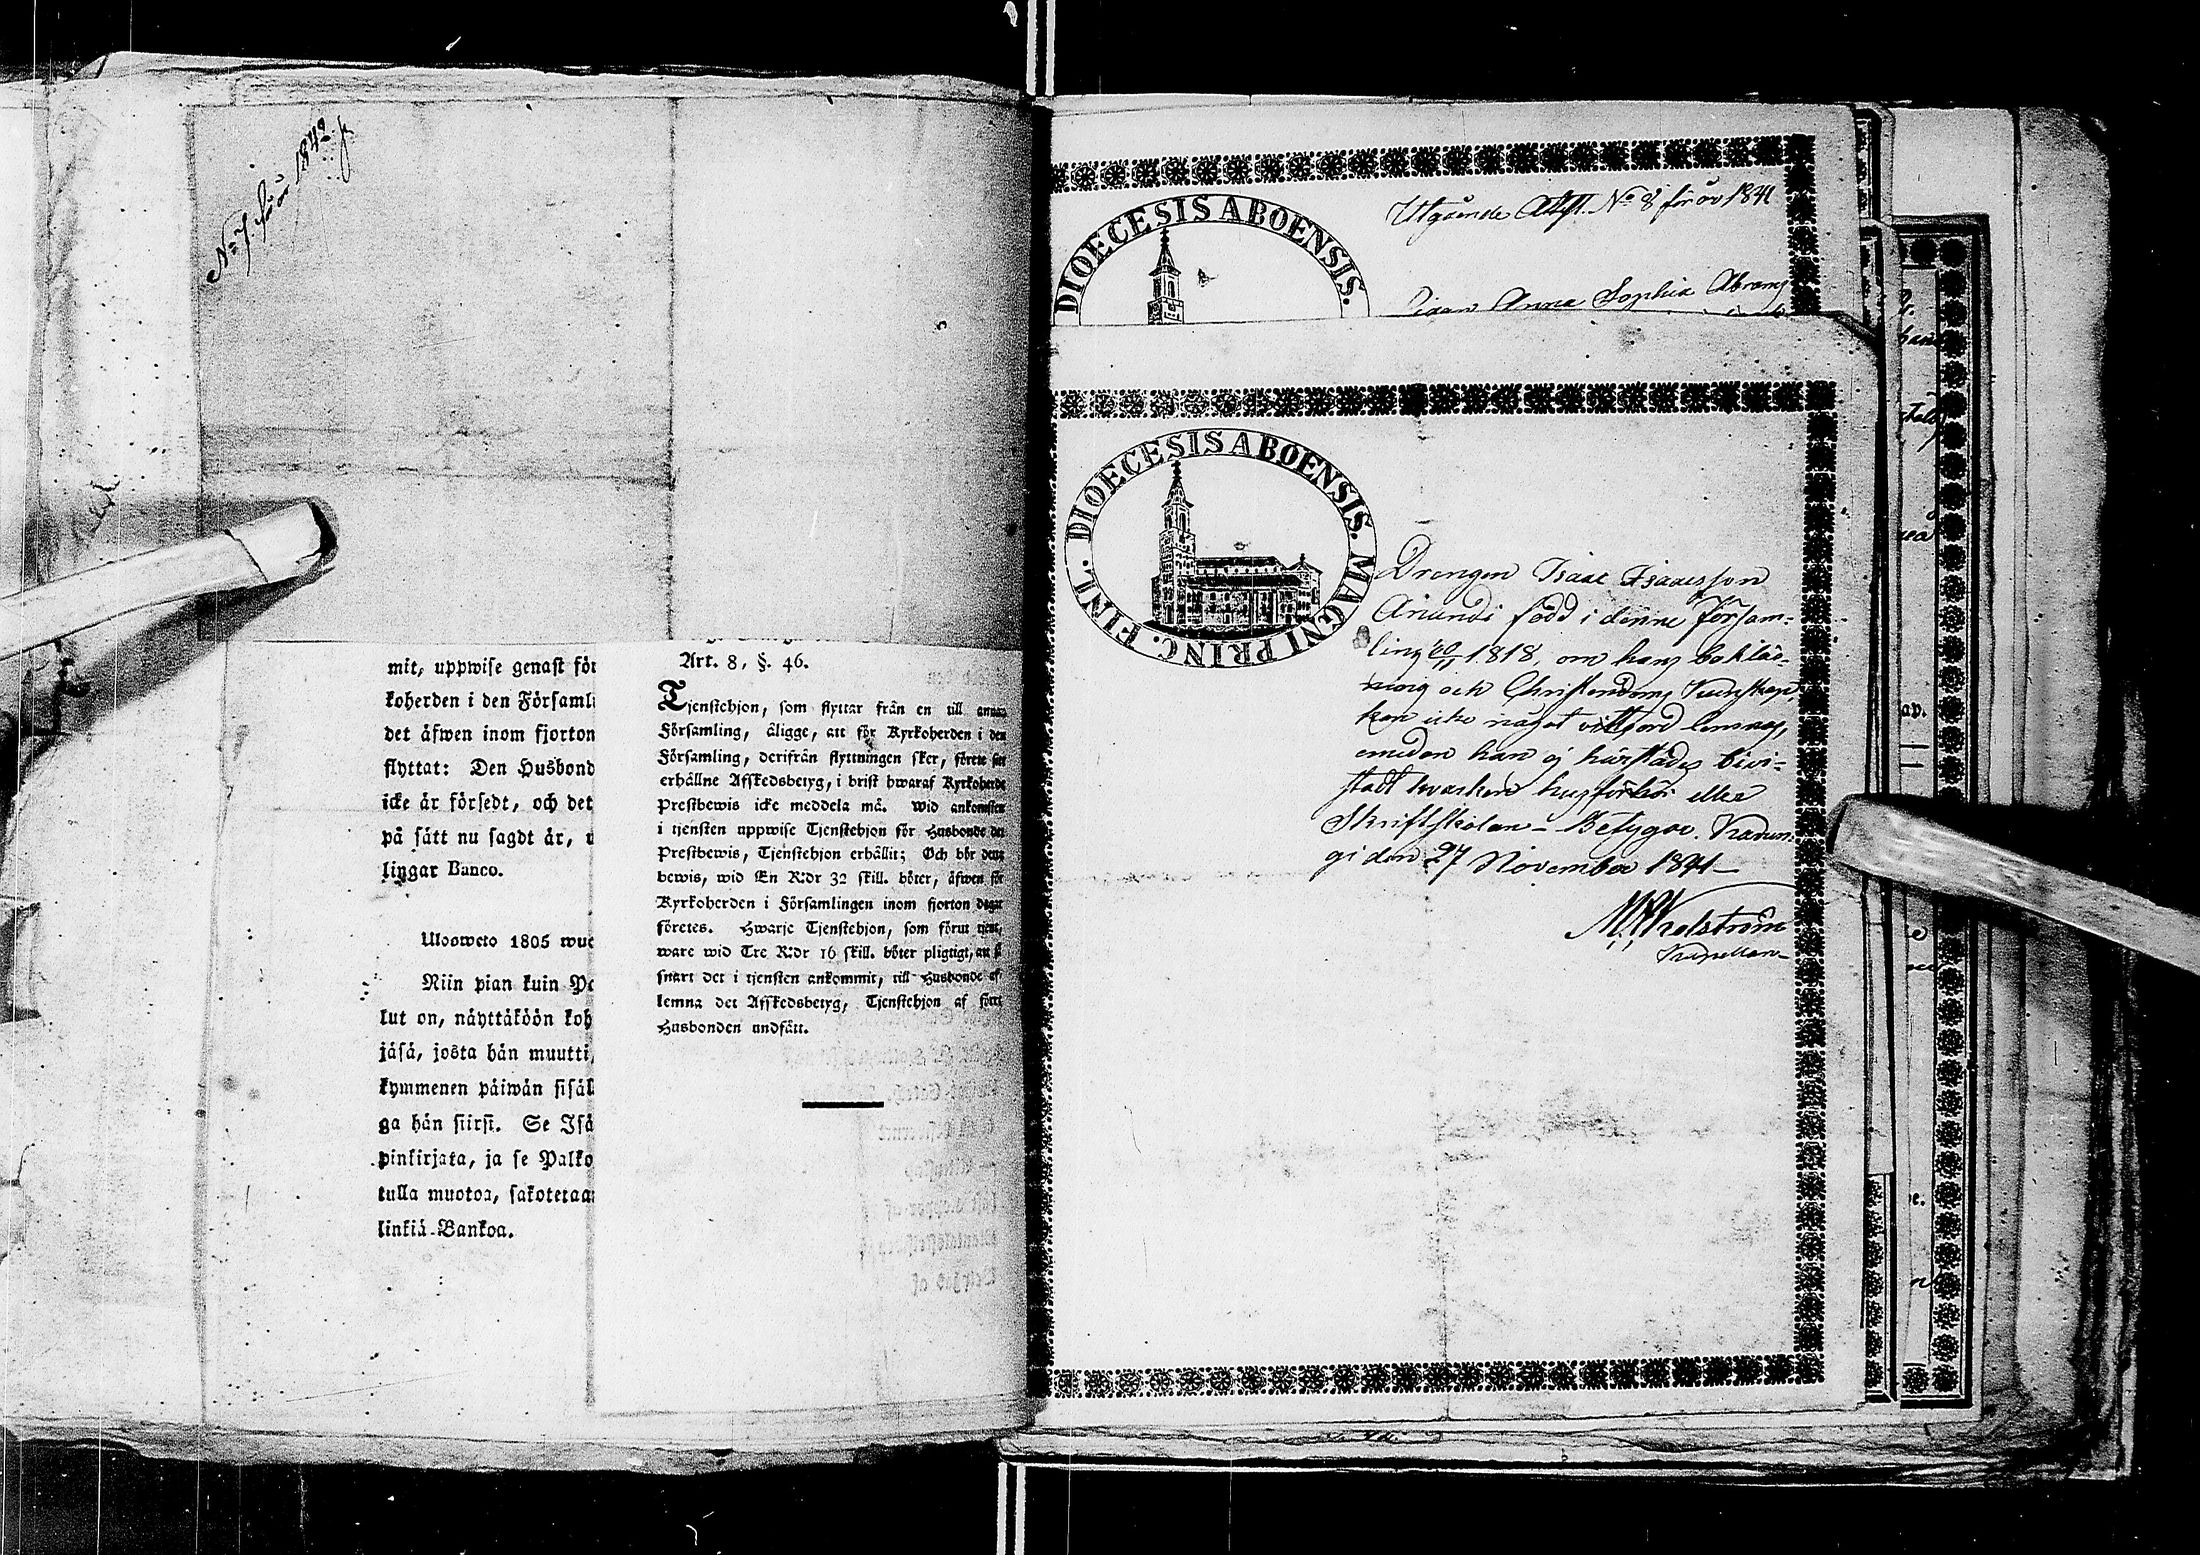 No 7. för år 1842
mit, uppwise genast för
koherden i den Församl
det äfwen inom fjorton
flyttat: Den Husbond
icke är försedt, och det
på sätt nu sagdt är,
lingar Banco.
Ulosweto 1805 wuo
Niin pian kuin Pa
lut on, näyttäköön koh
jäsä, josta hän muutti,
kymmenen päiwän sisäl
ga hän siirsi. Se Isä
pinkirjata, ja se Palko
tulla muotoa, sakotetaa
linkiä Bankoa.
Art. 8, §. 46.
Tjenstehjon, som flyttar från en till annan
Församling, åligge, att för Kyrkoherden i den
Församling, derifrån flyttningen sker, förete sitt
erhållne Afskedsbetyg, i brist hwaraf Kyrkoherde
Prestbewis icke meddela må. Wid ankomsten
i tjensten uppwise Tjenstehjon för Husbonde det
Prestbewis, Tjenstehjon erhållit; Och bör detta
bewis, wid En R:dr 32 skill. böter, äfwen för
Kyrkoherden i Församlingen inom fjorton dagar
företes. Hwarje Tjenstehjon, som förut tjent,
ware wid Tre R:dr 16 skill. böter pligtigt, att så
snart det i tjensten ankommit, till Husbonde af
lemna det Afskedsbetyg, Tjenstehjon af förre
Husbonden undfått.
DIOECESIS ABOENSIS.
Utgående Attest. No 8 för år 1841
Pigan Anna Sophia Abrams
DIOECESIS ABOENSIS. MAGNI PRINC. FINL.
Drengen Isaac Isaacsson
född i denne Försam-
ling 1818, om hans bokläs-
ning och Christendoms Kunskap,
kan icke något vittsord lemnas,
emedan han ej härstädes bevi-
stadt hvarken husförhör eller
Skriftskolan – Betygar. Karun-
gi den 27 November 1841 –
Kapellan –